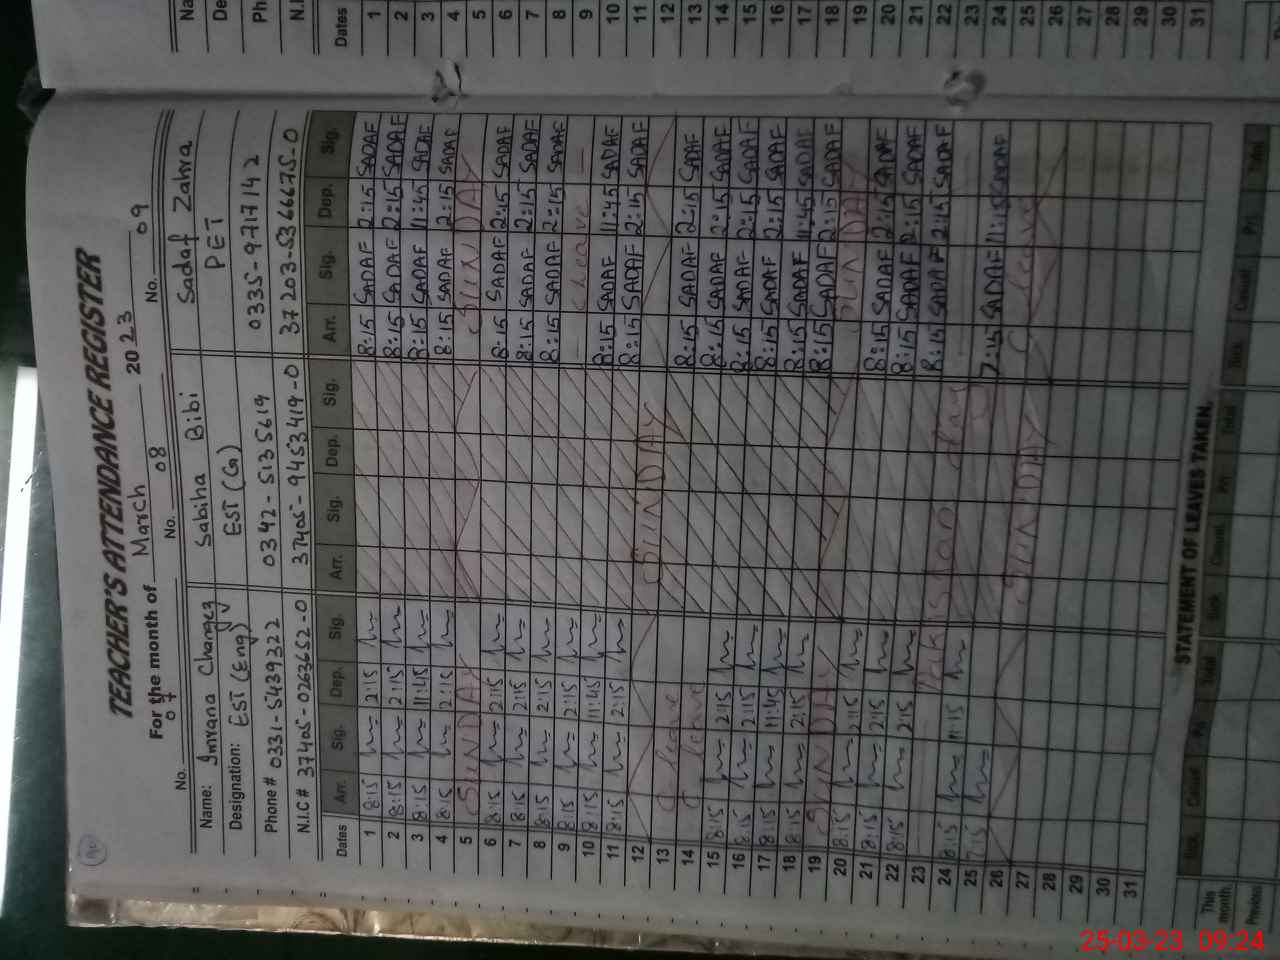 TEACHER'S ATTENDANCE REGISTER
For the month of March 2023
No. 07 No. 08 No. 09
Name: Imrana Changez Sabiha Bibi Sadaf Zahra
Designation: EST (Eng) EST (G) PET
Phone # 0331-5439322 0342-5135619 0335-9717142
N.I.C # 37405-0263652-0 37405-9453419-0 37203-5366675-0
Dates Arr. Sig. Dep. Sig. Arr. Sig. Dep. Sig. Arr. Sig. Dep. Sig.
1 8:15 2:15 8:15 SADAF 2:15 SADAF
2 8:15 2:15 8:15 SADAF 2:15 SADAF
3 8:15 11:45 8:15 SADAF 11:45 SADAF
4 8:15 2:15 8:15 SADAF 2:15 SADAF
5 SUNDAY SUNDAY
6 8:15 2:15 8:15 SADAF 2:15 SADAF
7 8:15 2:15 8:15 SADAF 2:15 SADAF
8 8:15 2:15 8:15 SADAF 2:15 SADAF
9 8:15 2:15 leave
10 8:15 11:45 8:15 SADAF 11:45 SADAF
11 8:15 2:15 8:15 SADAF 2:15 SADAF
12 SUNDAY
13 leave 8:15 SADAF 2:15 SADAF
14 leave 8:15 SADAF 2:15 SADAF
15 8:15 2:15 8:15 SADAF 2:15 SADAF
16 8:15 2:15 8:15 SADAF 2:15 SADAF
17 8:15 11:45 8:15 SADAF 11:45 SADAF
18 8:15 2:15 8:15 SADAF 2:15 SADAF
19 SUNDAY SUNDAY
20 8:15 2:15 8:15 SADAF 2:15 SADAF
21 8:15 2:15 8:15 SADAF 2:15 SADAF
22 8:15 2:15 8:15 SADAF 2:15 SADAF
23 Pakistan Day
24 8:15 11:15 7:15 SADAF 11:15 SADAF
25 7:15 leave
26 SUNDAY
27
28
29
30
31
STATEMENT OF LEAVES TAKEN.
Sick Casual Pri Total Sick Casual Pri Total Sick Casual Pri Total
This month
Previous
Dates
1
2
3
4
5
6
7
8
9
10
11
12
13
14
15
16
17
18
19
20
21
22
23
24
25
26
27
28
29
30
31
25-03-23 09:24